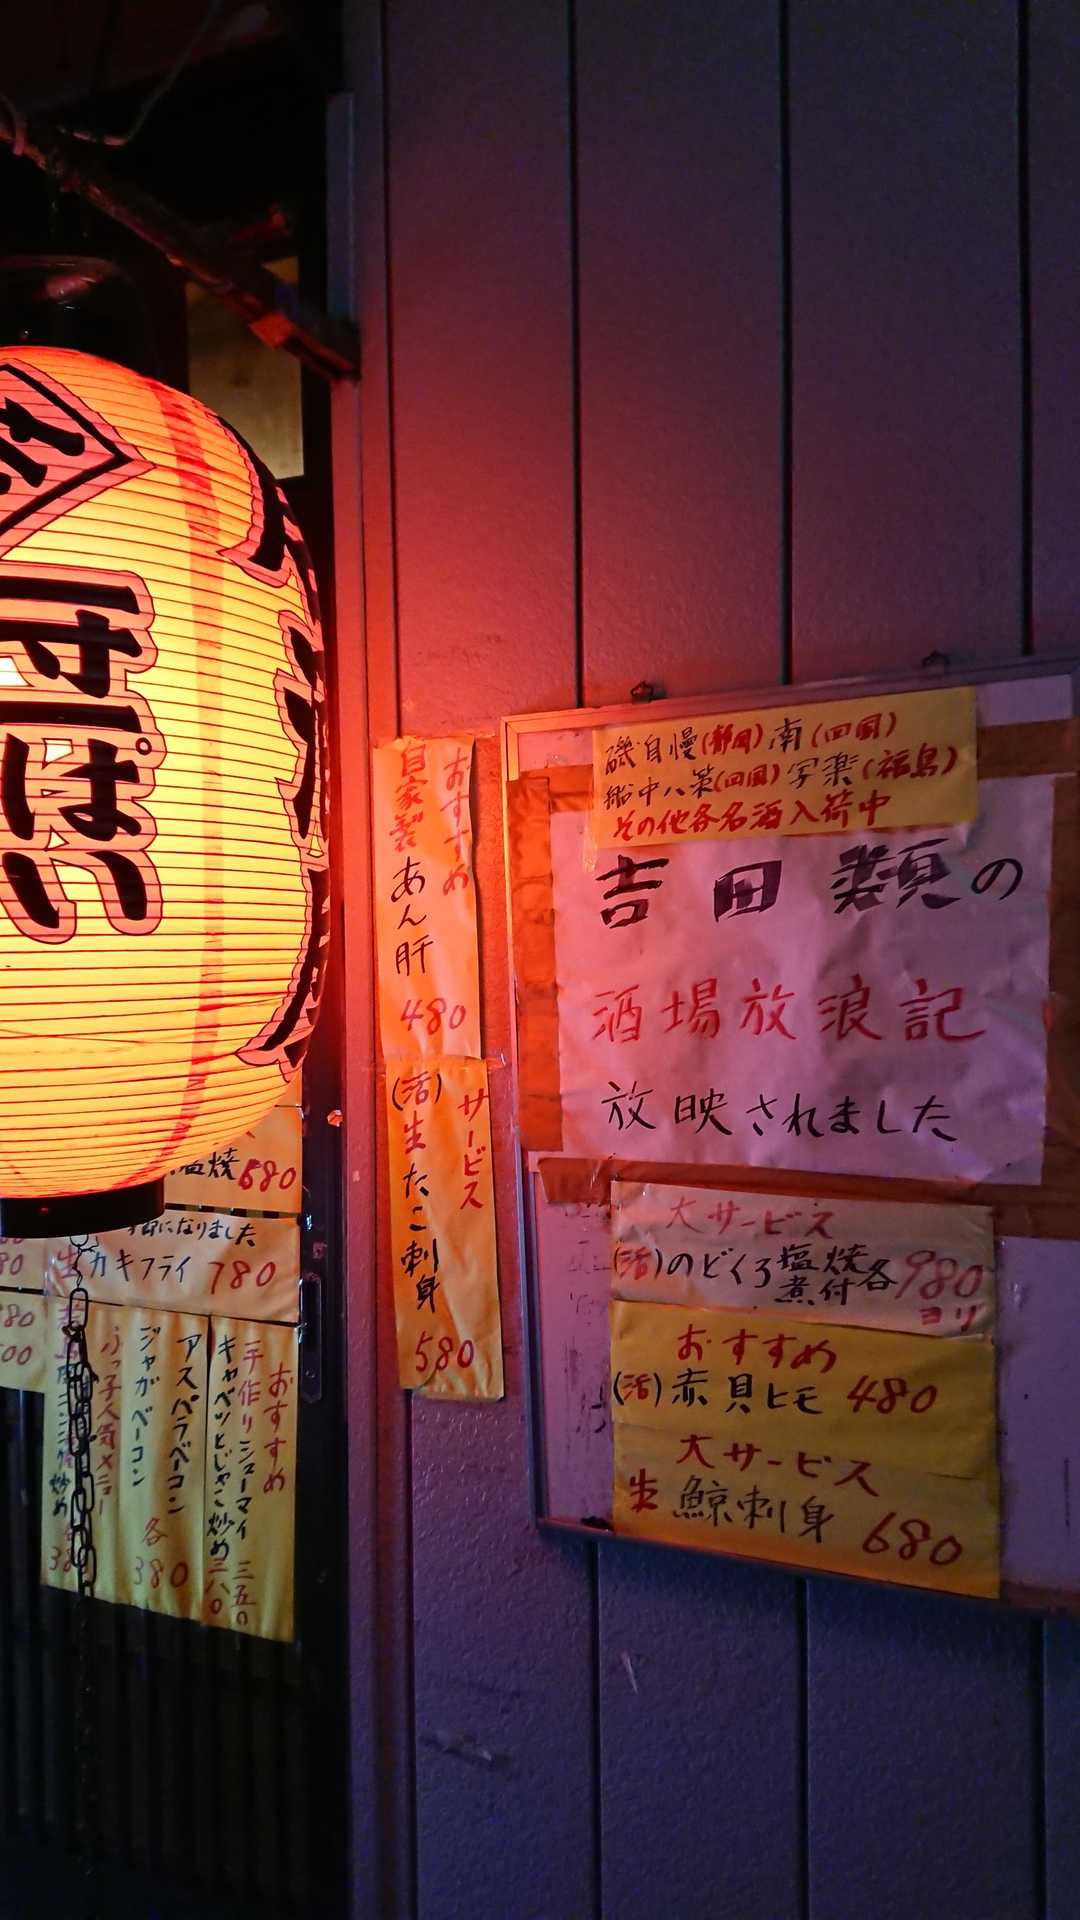 ぱい
磯自慢(静岡)南(四国)
船中八策(四国)写楽(福島)
その他各名酒入荷中
吉田類の
酒場放浪記
放映されました
大サービス
(活)のどくろ塩焼煮付各980ヨリ
おすすめ
(活)赤貝ヒモ 480
大サービス
生鯨刺身 680
おすすめ
自家製あん肝 480
サービス
(活)生たこ刺身 580
塩焼 580
になりました
カキフライ 780
おすすめ
手作りシューマイ 三五〇
キャベツとじゃこ炒め 三八〇
アスパラベーコン
ジャガベーコン
各380
人気メニュー
炒め